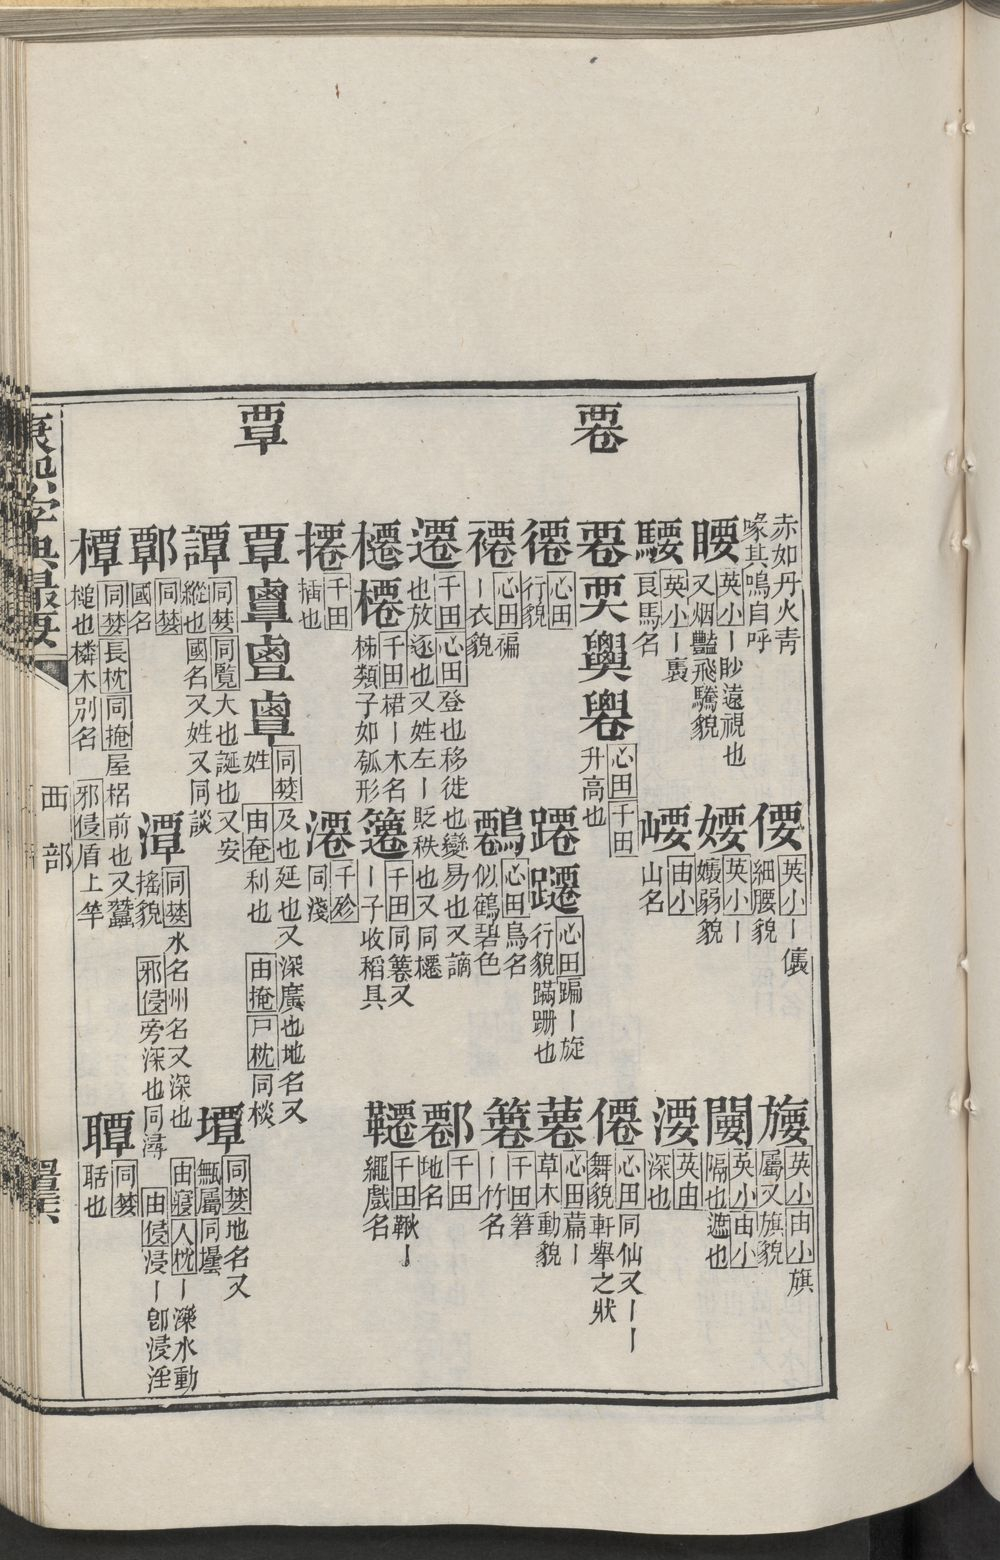 覃
赤如丹火青
喙其鳴自呼
偠 英小丨儀
細腰貌
英小由小旗
屬又旗貌
䁏 英小丨眇遠視也
又烟豔飛騰貌
婹 英小丨
孃弱貌
英小由小
隔也遮也
騕 英小丨褭
良馬名
㟱 由小
山名
溇 英由
深也
心田千田
升高也
僊 心田同仙又丨丨
舞貌軒舉之狀
心田
行貌
躚 心田蹁丨旋
行貌蹣跚也
心田萹丨
草木動貌
褼 心田褊
丨衣貌
心田鳥名
似鶴碧色
千田箬
丨竹名
遷 千田心田登也移徙也變易也又謫
也放逐也又姓左丨貶秩也又同櫏
千田
地名
櫏 千田桾丨木名
柹類子如瓠形
千田同䉛又
丨子收稻具
韆 千田鞦丨
繩戲名
千田
插也
千㐱
同淺
覃 同婪及也延也又深廣也地名又
姓 由奄利也 由掩戸枕同棪
譚 同婪同覧大也誕也又安
縱也國名又姓又同談
墰 同婪地名又
甒屬同壜
鄿 同婪
國名
潭 同婪水名州名又深也 由寢人枕丨濼水動
搖貌 邪侵旁深也同潯 由侵浸丨卽浸淫
橝 同婪長枕同掩屋梠前也又蠶
槌也橉木別名 邪侵盾上竿
同婪
聒也
康熙字典最要
西部